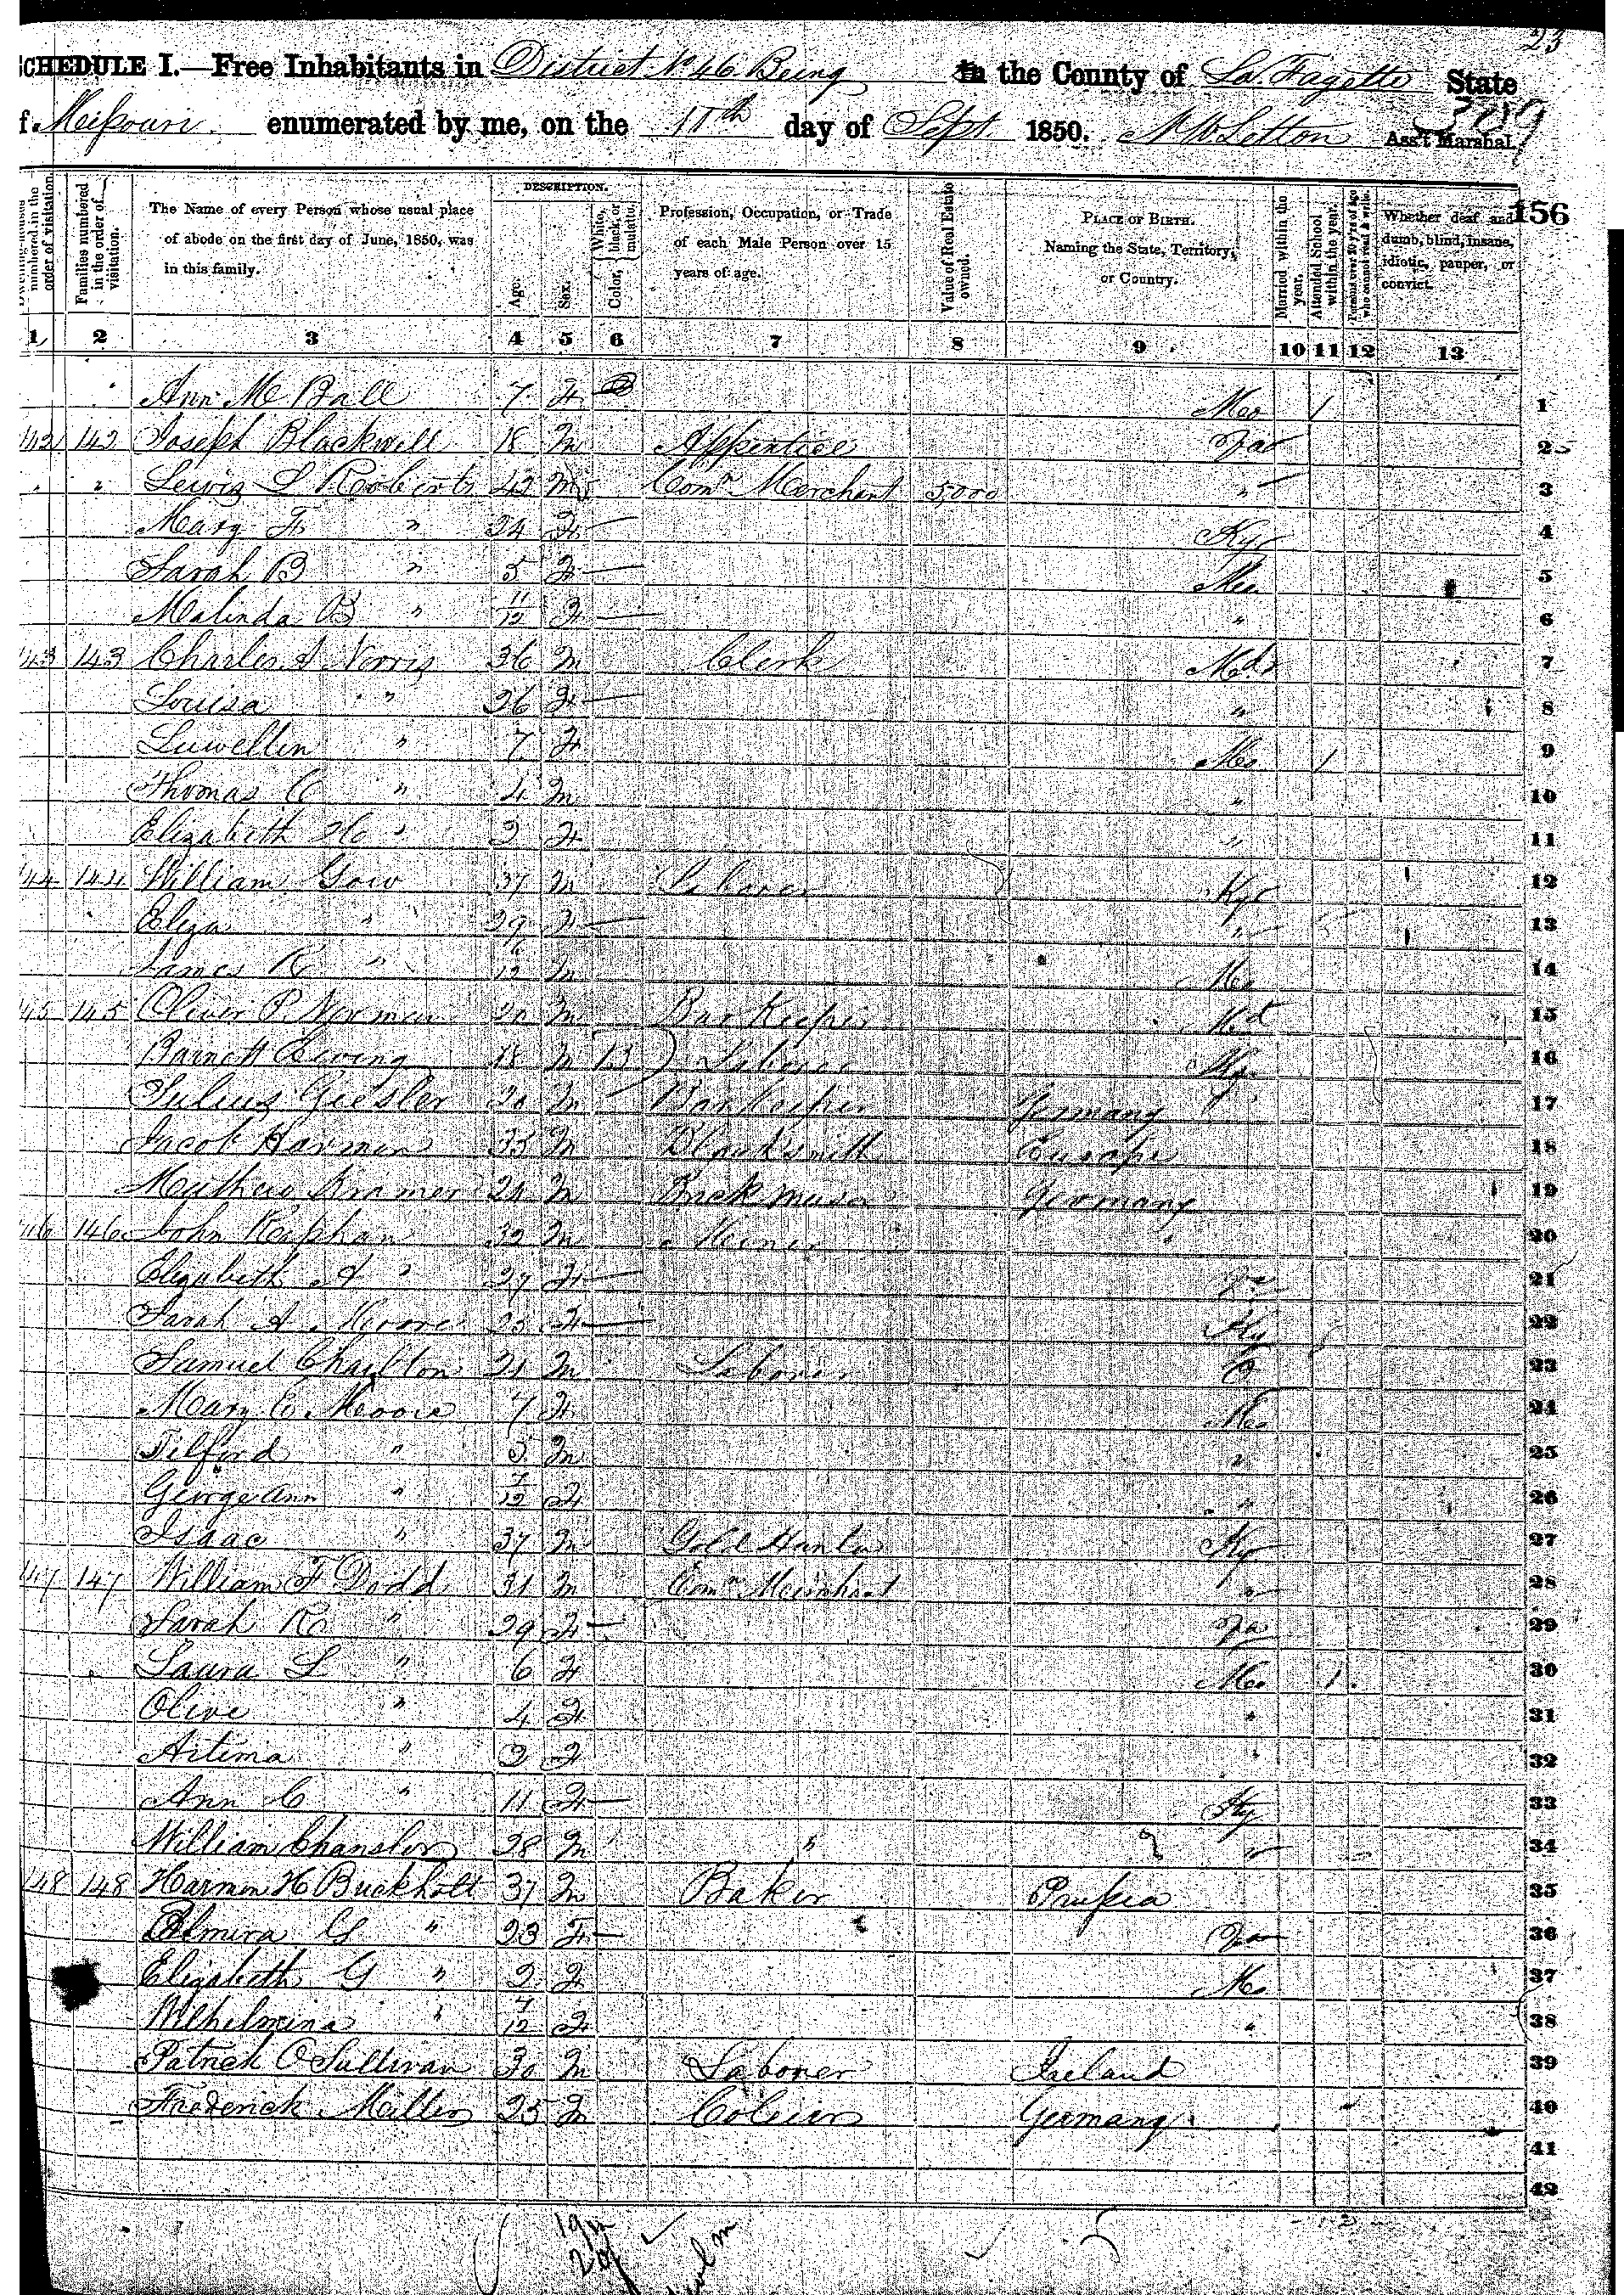 23
SCHEDULE I.—Free Inhabitants in District No 46 Being in the County of La Fayette State
of Missouri enumerated by me, on the 11th day of Sept 1850. Ass't Marshal.
156
Dwelling-houses numbered in the order of visitation. Families numbered in the order of visitation. The Name of every Person whose usual place of abode on the first day of June, 1850, was in this family. DESCRIPTION. Age. Sex. Color, White, black, or mulatto. Profession, Occupation, or Trade of each Male Person over 15 years of age. Value of Real Estate owned. PLACE OF BIRTH. Naming the State, Territory, or Country. Married within the year. Attended School within the year. Persons over 20 y'rs of age who cannot read & write. Whether deaf and dumb, blind, insane, idiotic, pauper, or convict.
1 2 3 4 5 6 7 8 9 10 11 12 13
Ann M Ball 7 F B Mo / 1
142 142 Joseph Blackwell 18 M Appentice Va 2
" " Lewis L Roberts 42 M Comn Merchant 5,000 " 3
Mary F " 24 F Ky 4
Sarah B " 5 F Mo 5
Malinda B " 11/12 F " 6
143 143 Charles A Norris 36 M Clerk Md 7
Louisa " 26 F " 8
Luwellin " 7 F Mo / 9
Thomas C " 4 M " 10
Elizabeth " 2 F " 11
144 144 William Gow 37 M Laborer Ky 12
Eliza " 29 F " 13
James R " /12 M Mo 14
145 145 Oliver P. Norman M Bar Keeper Md 15
Barnett Ewing 18 M B Laborer Ky 16
Julius Giesler M Bar keeper Germany 17
Jacob Harmen 33 M Blacksmith Europe 18
Kramer M Brick mason Germany 19
146 146 John 32 M Miner " 20
Elizabeth A " 27 F Va 21
Sarah A Moore 25 F Ky 22
Samuel Charlton 21 M Laborer O 23
Mary E Moore 7 F Mo 24
Tilford " 5 M " 25
George Ann " 7/12 F " 26
Isaac " 37 M Gold Hunter Ky 27
147 147 William F Dodd 31 M Comn Merchant " 28
Sarah R " 29 F Va 29
Laura L " 6 F Mo 1 30
Olive " 4 F " 31
Artima " 2 F " 32
Ann C " 11 F Ky 33
William Chansler 28 M " " 34
148 148 Harmon H Buckholt 37 M Baker Prussia 35
Elmira G " 23 F Va 36
Elizabeth G " 2 F Mo 37
Wilhelmina " 7/12 F " 38
Patrick O Sullivan 30 M Laborer Ireland 39
Frederick Miller 25 M Germany 40
41
42
19m
20f